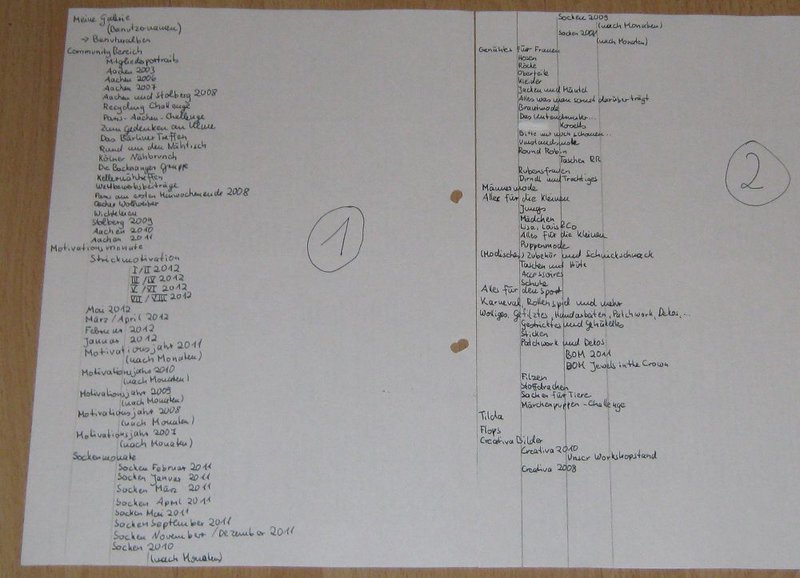 Meine Galerie
(Benutzernamen)
→ Benutzeralben
Community Bereich
Mitgliedsportraits
Aachen 2003
Aachen 2006
Aachen 2007
Aachen und Stolberg 2008
Recycling Challenge
Paris-Aachen-Challenge
Zum Gedenken an
Das Berliner Treffen
Rund um den Nähtisch
Kölner Nähbrunch
Die Backnanger Gruppe
Kellernähtreffen
Wettbewerbsbeiträge
Paris am ersten Maiwochenende 2008
Wichteleien
Stolberg 2009
Aachen 2010
Aachen 2011
Motivationsmonate
Strickmotivation
I/II 2012
III/IV 2012
V/VI 2012
VII/VIII 2012
Mai 2012
März/April 2012
Februar 2012
Januar 2012
Motivationsjahr 2011
(nach Monaten)
Motivationsjahr 2010
(nach Monaten)
Motivationsjahr 2009
(nach Monaten)
Motivationsjahr 2008
(nach Monaten)
Motivationsjahr 2007
(nach Monaten)
Sockenmonate
Socken Februar 2011
Socken Januar 2011
Socken März 2011
Socken April 2011
Socken Mai 2011
Socken September 2011
Socken November/Dezember 2011
Socken 2010
(nach Monaten)
1
Socken 2009
(nach Monaten)
Socken
(nach Monaten)
Genähtes für Frauen
Hosen
Röcke
Oberteile
Kleider
Jacken und Mäntel
Alles was man sonst darüber trägt
Brautmode
Das Untendrunter...
Korsetts
Bitte nur noch schauen...
Umstandsmode
Round Robin
Taschen RR
Rubensfrauen
Dirndl und Trachtiges
Männermode
Alles für die Kleinen
Jungs
Mädchen
Lisa, Laris & Co
Alles für die Kleinen
Puppenmode
(Modisches) Zubehör und Schnickschnack
Taschen und Hüte
Accessoires
Schuhe
Alles für den Sport
Karneval, Rollenspiel und mehr
Wolliges, Gefilztes, Handarbeiten, Patchwork, Dekos,...
Gestricktes und Gehäkeltes
Sticken
Patchwork und Dekos
BOM 2011
BOM Jewels in the Crown
Filzen
Stoffdrachen
Sachen für Tiere
Märchenpuppen-Challenge
Tilda
Flops
Creativa Bilder
Creativa 2010
Unser Workshopstand
Creativa 2008
2